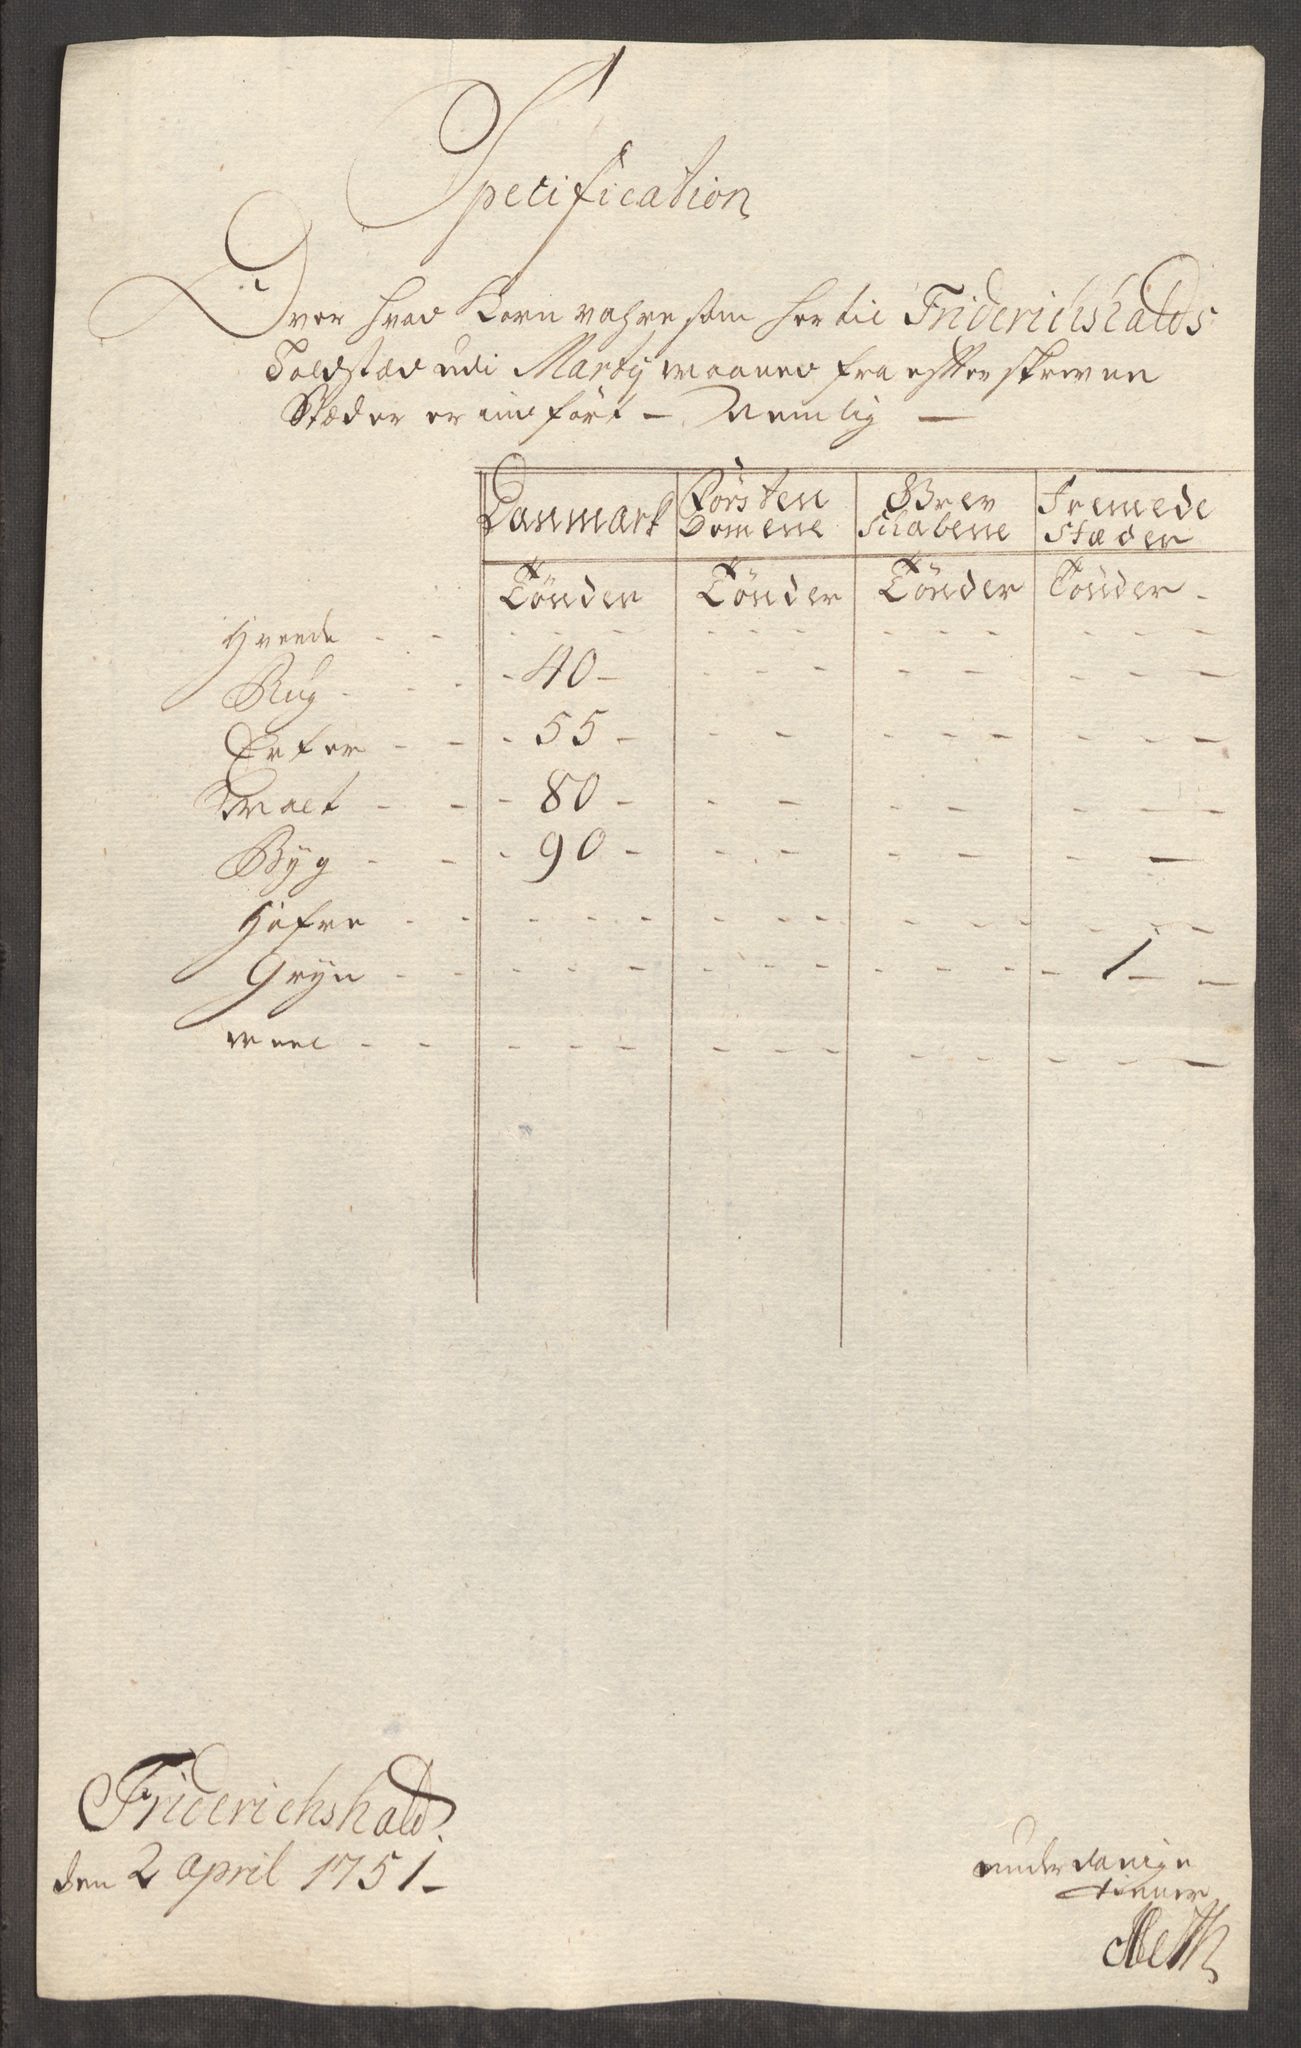 Specification
Over hvad Korn vahre som her til Friderichshalds
Toldstæd udi Marty maaned fra efterskrevne
Stæder er indført – Nemlig –
Danmark Førsten Grev Fremede
Domene schabene stæder
Tønder Tønder Tønder Tønder
Hveede
Rug 40
Erter 55
Malt 80
Byg 90
Hafre
Gryn 1
meel
Friderichshald
den 2 april 1751
underdanige
tiener